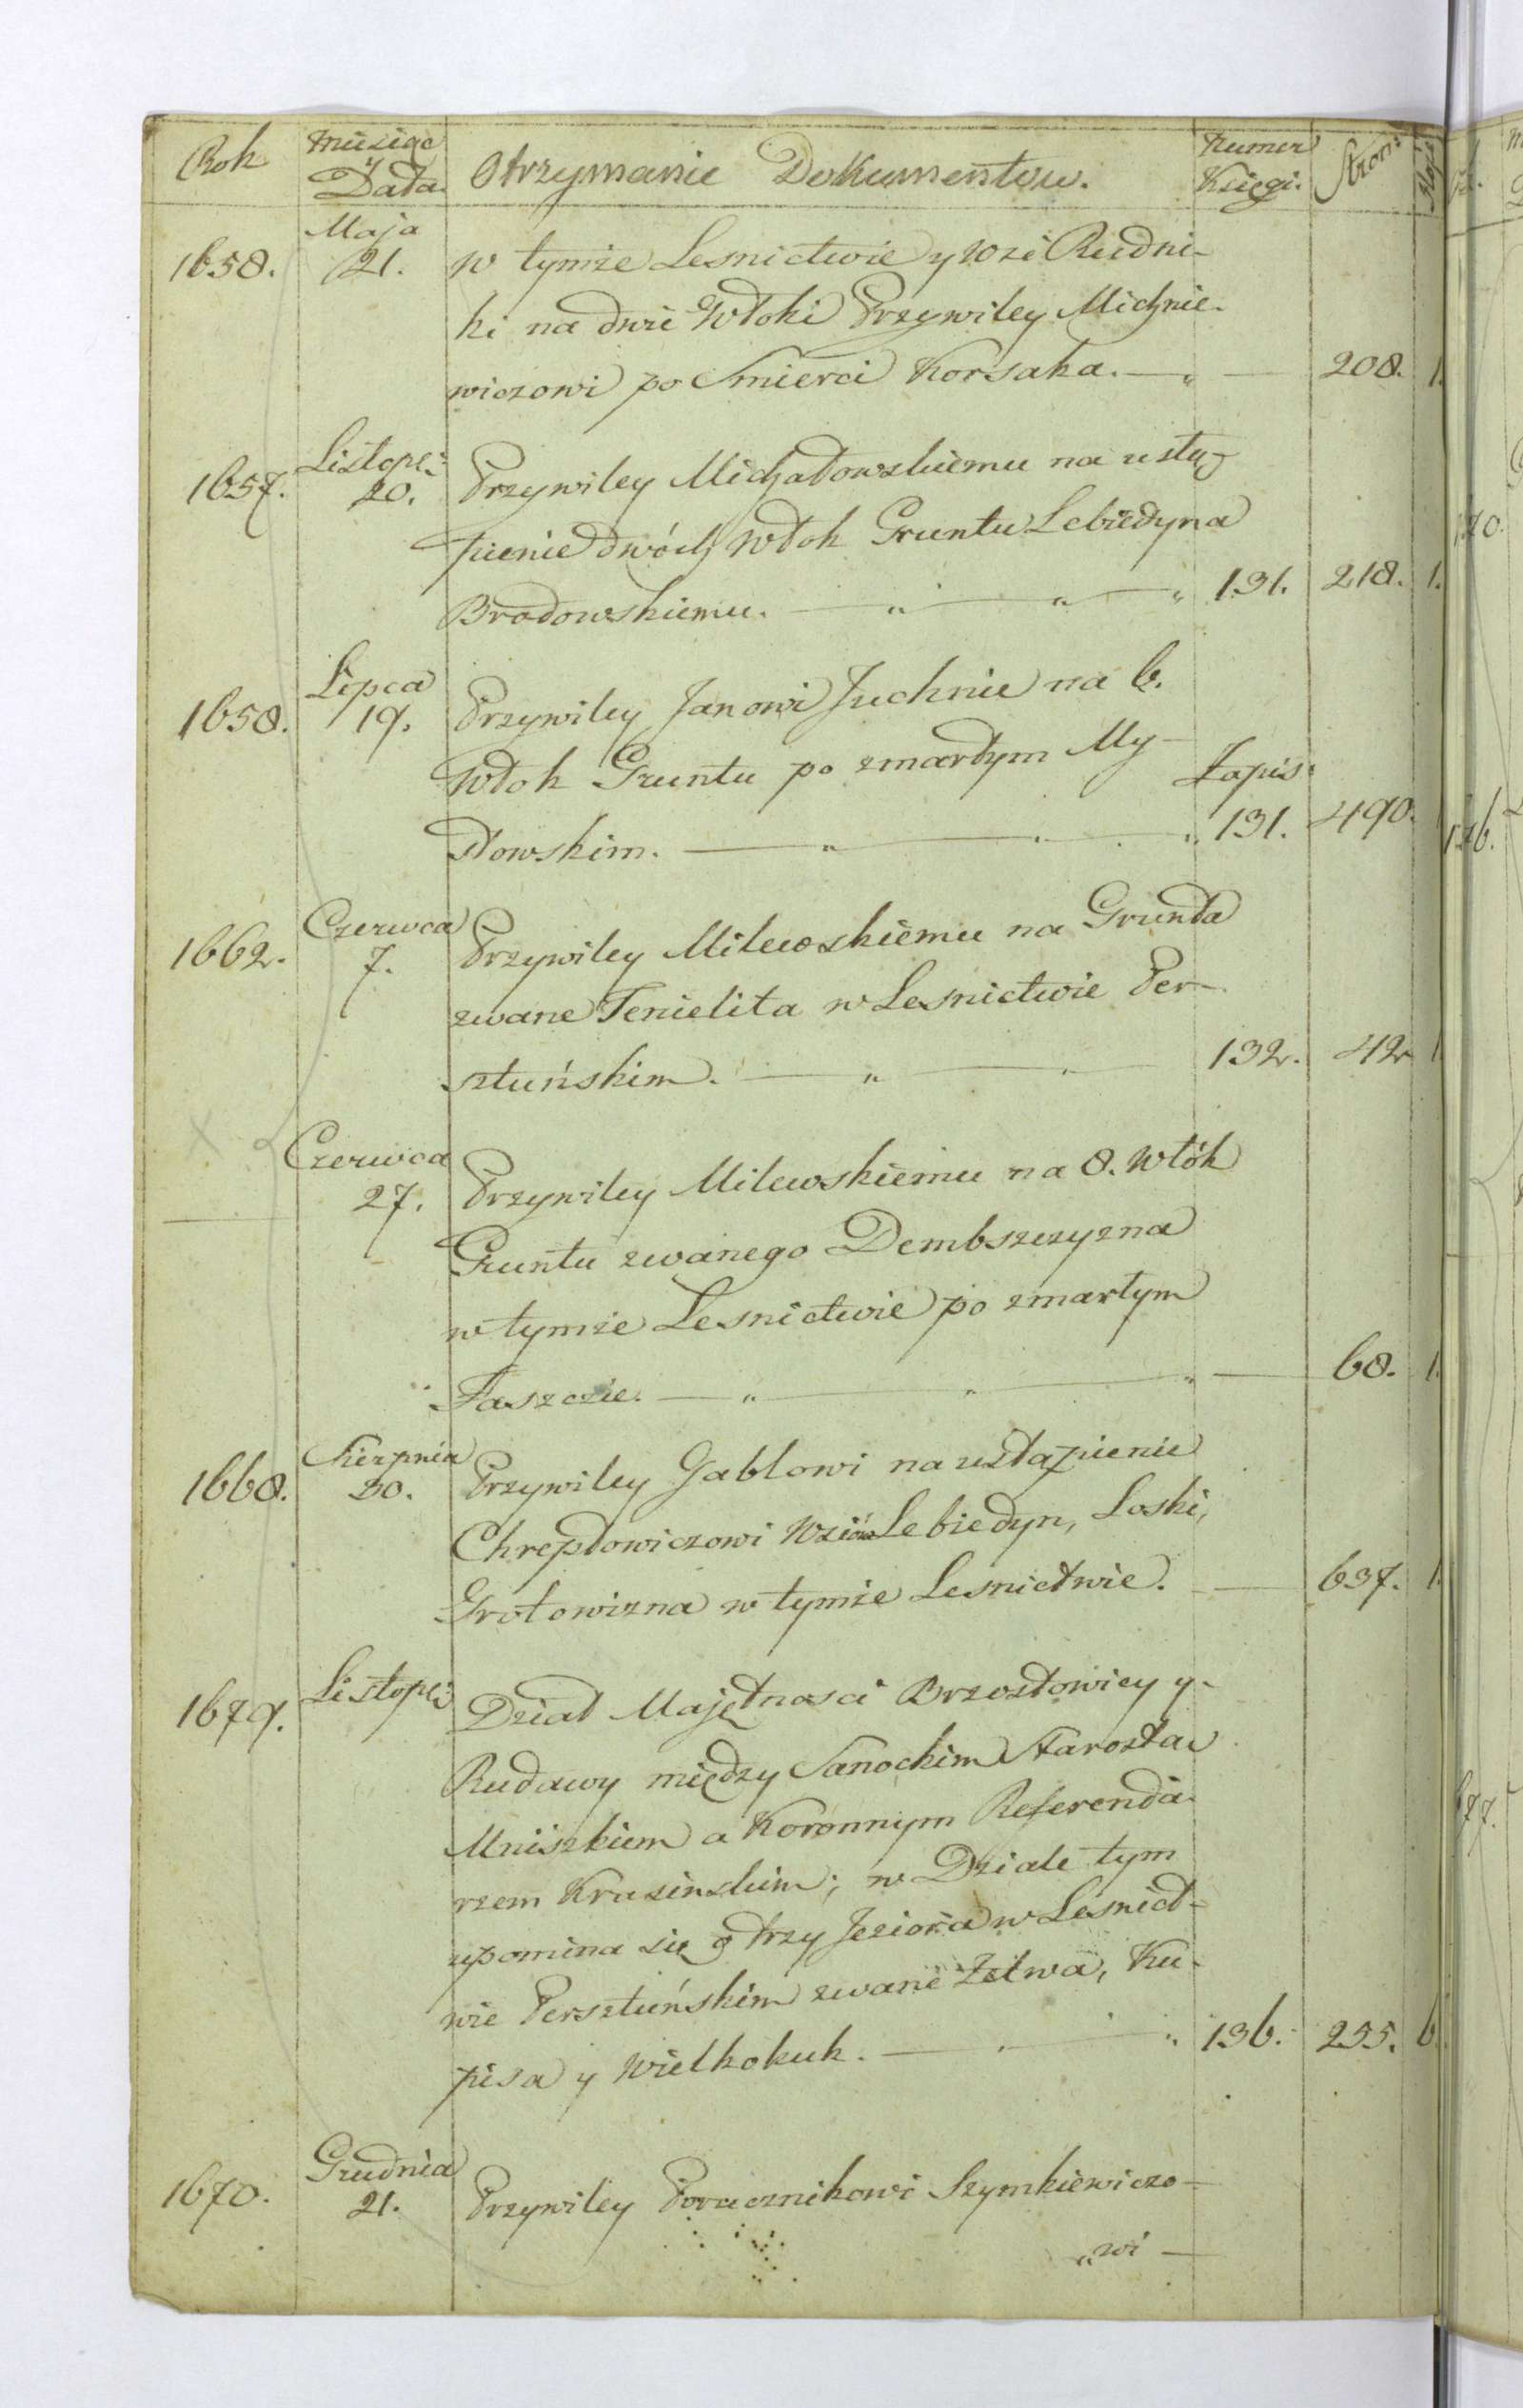 Rok Miesiąc y Data. Otrzymanie Dokumentow. Numer Księgi. Stron:
Maja
1658. 21. w tymże Lesnictwie y Wsi Rudni-
ki na dwie Włoki Przywiley Michnie-
wiczowi po Smierci Korsaka. — 208. 1.
Listop:
1657. 20. Przywiley Michałowskiemu na ustą-
pienie dwóch Włok Gruntu Lebiedyna
Bradowskiemu. — 131. 218. 1.
Lipca
1658. 19. Przywiley Janowi Juchnie na 6.
Włok Gruntu po zmarłym My- Zapis:
słowskim. — 131. 490.
Czerwca
1662. 7. Przywiley Milewskiemu na Grunta
zwane Tenielita w Lesnictwie Per-
sztuńskim. — 132. 42 1
Czerwca
27. Przywiley Milewskiemu na 8. Włók
Gruntu zwanego Dembszczyzna
w tymże Lesnictwie po zmarłym
Faszczie. — 68. 1.
Sierpnia
1668. 30. Przywiley Gablowi na ustąpienie
Chreptowiczowi Lebiedyn, Loski,
Grotowizna w tymże Lesnictwie. — 637. 1.
Listop:
1679. Dział Majętnosci Brzostowicy y
Rudawy między Sanockim Starostą
Mniszkiem a Koronnym Referenda-
rzem Krasinskim; w Dziale tym
upomina się o trzy Jeziora w Lesnict-
wie Persztuńskim zwane Zelwa, Ku-
pisa y Wielkokuk. — 136. 255. 6.
Grudnia
1670. 21. Przywiley Porucznikowi Szymkiewiczo-
„wi —